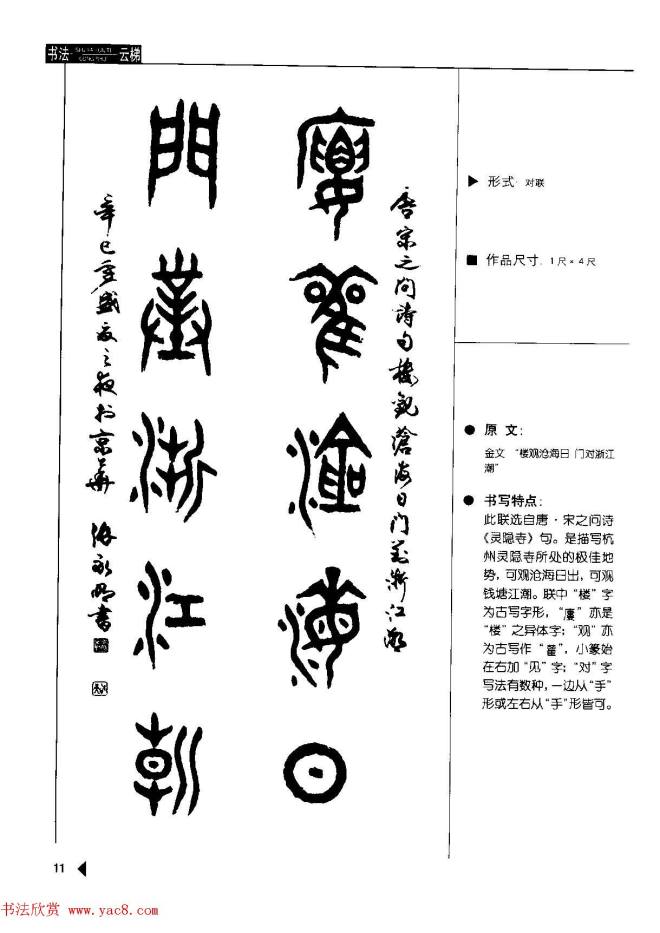 书法 云梯
唐宋之问詩句楼觀滄海日门对浙江潮
廔雚滄海日
門對浙江潮
辛巳盛夏之夜於京華 永明書
▶ 形式: 对联
■ 作品尺寸: 1尺×4尺
● 原 文:
金文 “楼观沧海日 门对浙江
潮”
● 书写特点:
此联选自唐·宋之问诗
《灵隐寺》句。是描写杭
州灵隐寺所处的极佳地
势,可观沧海日出,可观
钱塘江潮。联中“楼”字
为古写字形,“廔”亦是
“楼”之异体字;“观”亦
为古写作“雚”,小篆始
在右加“见”字;“对”字
写法有数种,一边从“手”
形或左右从“手”形皆可。
11
书法欣赏 www.yac8.com